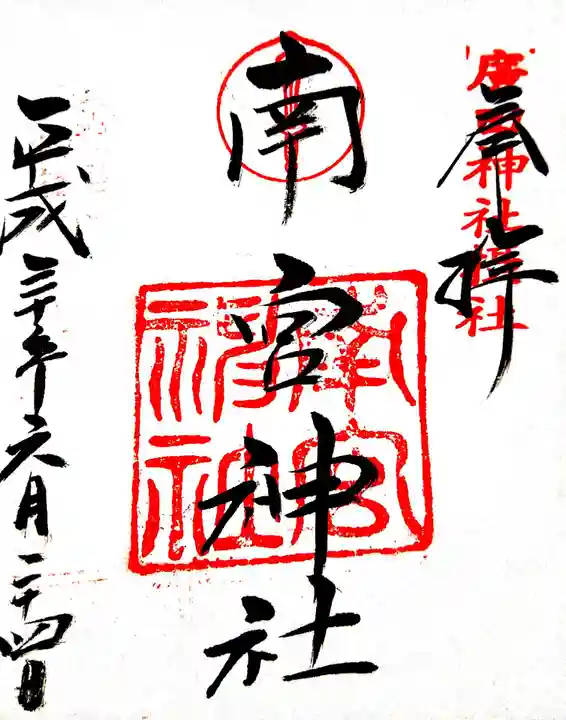 奉拝
廣田神社摂社
南宮神社
南宮神社
平成三十年六月二十四日